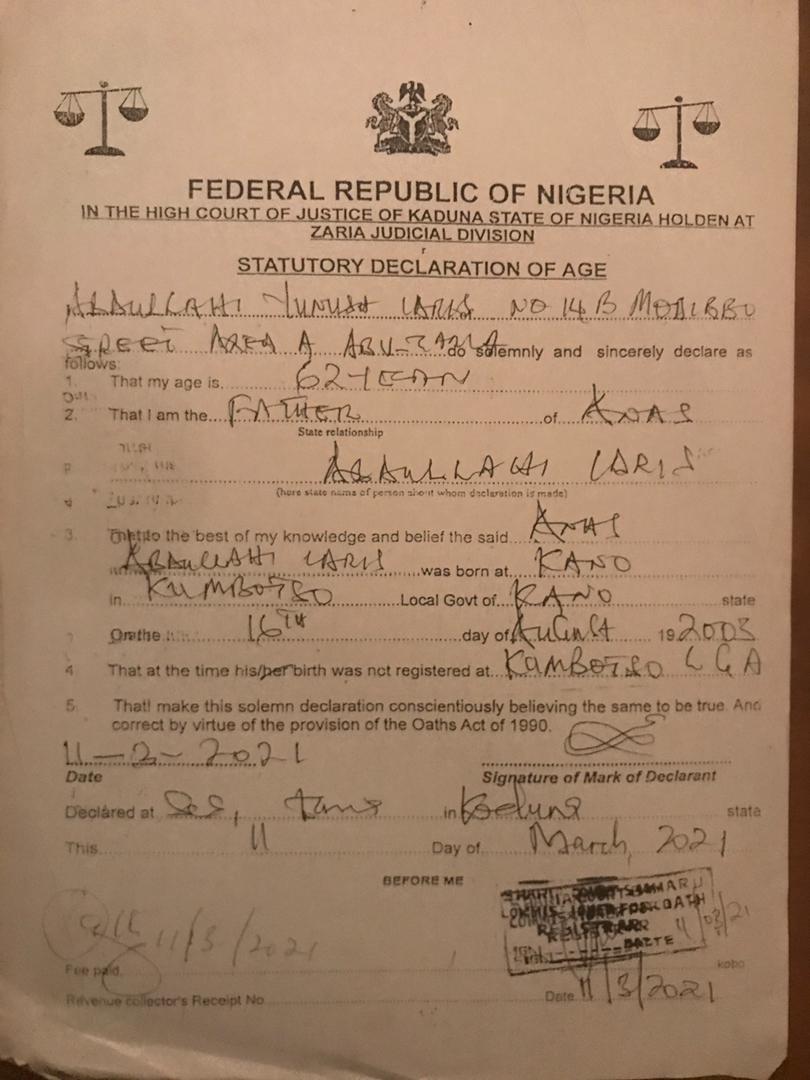 FEDERAL REPUBLIC OF NIGERIA
IN THE HIGH COURT OF JUSTICE OF KADUNA STATE OF NIGERIA HOLDEN AT
ZARIA JUDICIAL DIVISION
STATUTORY DECLARATION OF AGE
ABDULLAHI NO 14 B
AREA A do solemnly and sincerely declare as
follows:
1. That my age is 62
2. That I am the FATHER of ANAS
State relationship
ABDULLAHI
(here state name of person about whom declaration is made)
3. to the best of my knowledge and belief the said ANAS
ABDULLAHI was born at KANO
in KUMBOTSO Local Govt of KANO state
On the 16TH day of August 19 2003
4 That at the time his/her birth was not registered at KUMBOTSO LGA
5. That I make this solemn declaration conscientiously believing the same to be true. And
correct by virtue of the provision of the Oaths Act of 1990.
11-2-2021
Date Signature of Mark of Declarant
Declared at in Kaduna state
This 11 Day of March, 2021
BEFORE ME
REGISTRAR
11/3/2021
Fee paid kobo
Revenue collector's Receipt No Date 11/3/2021